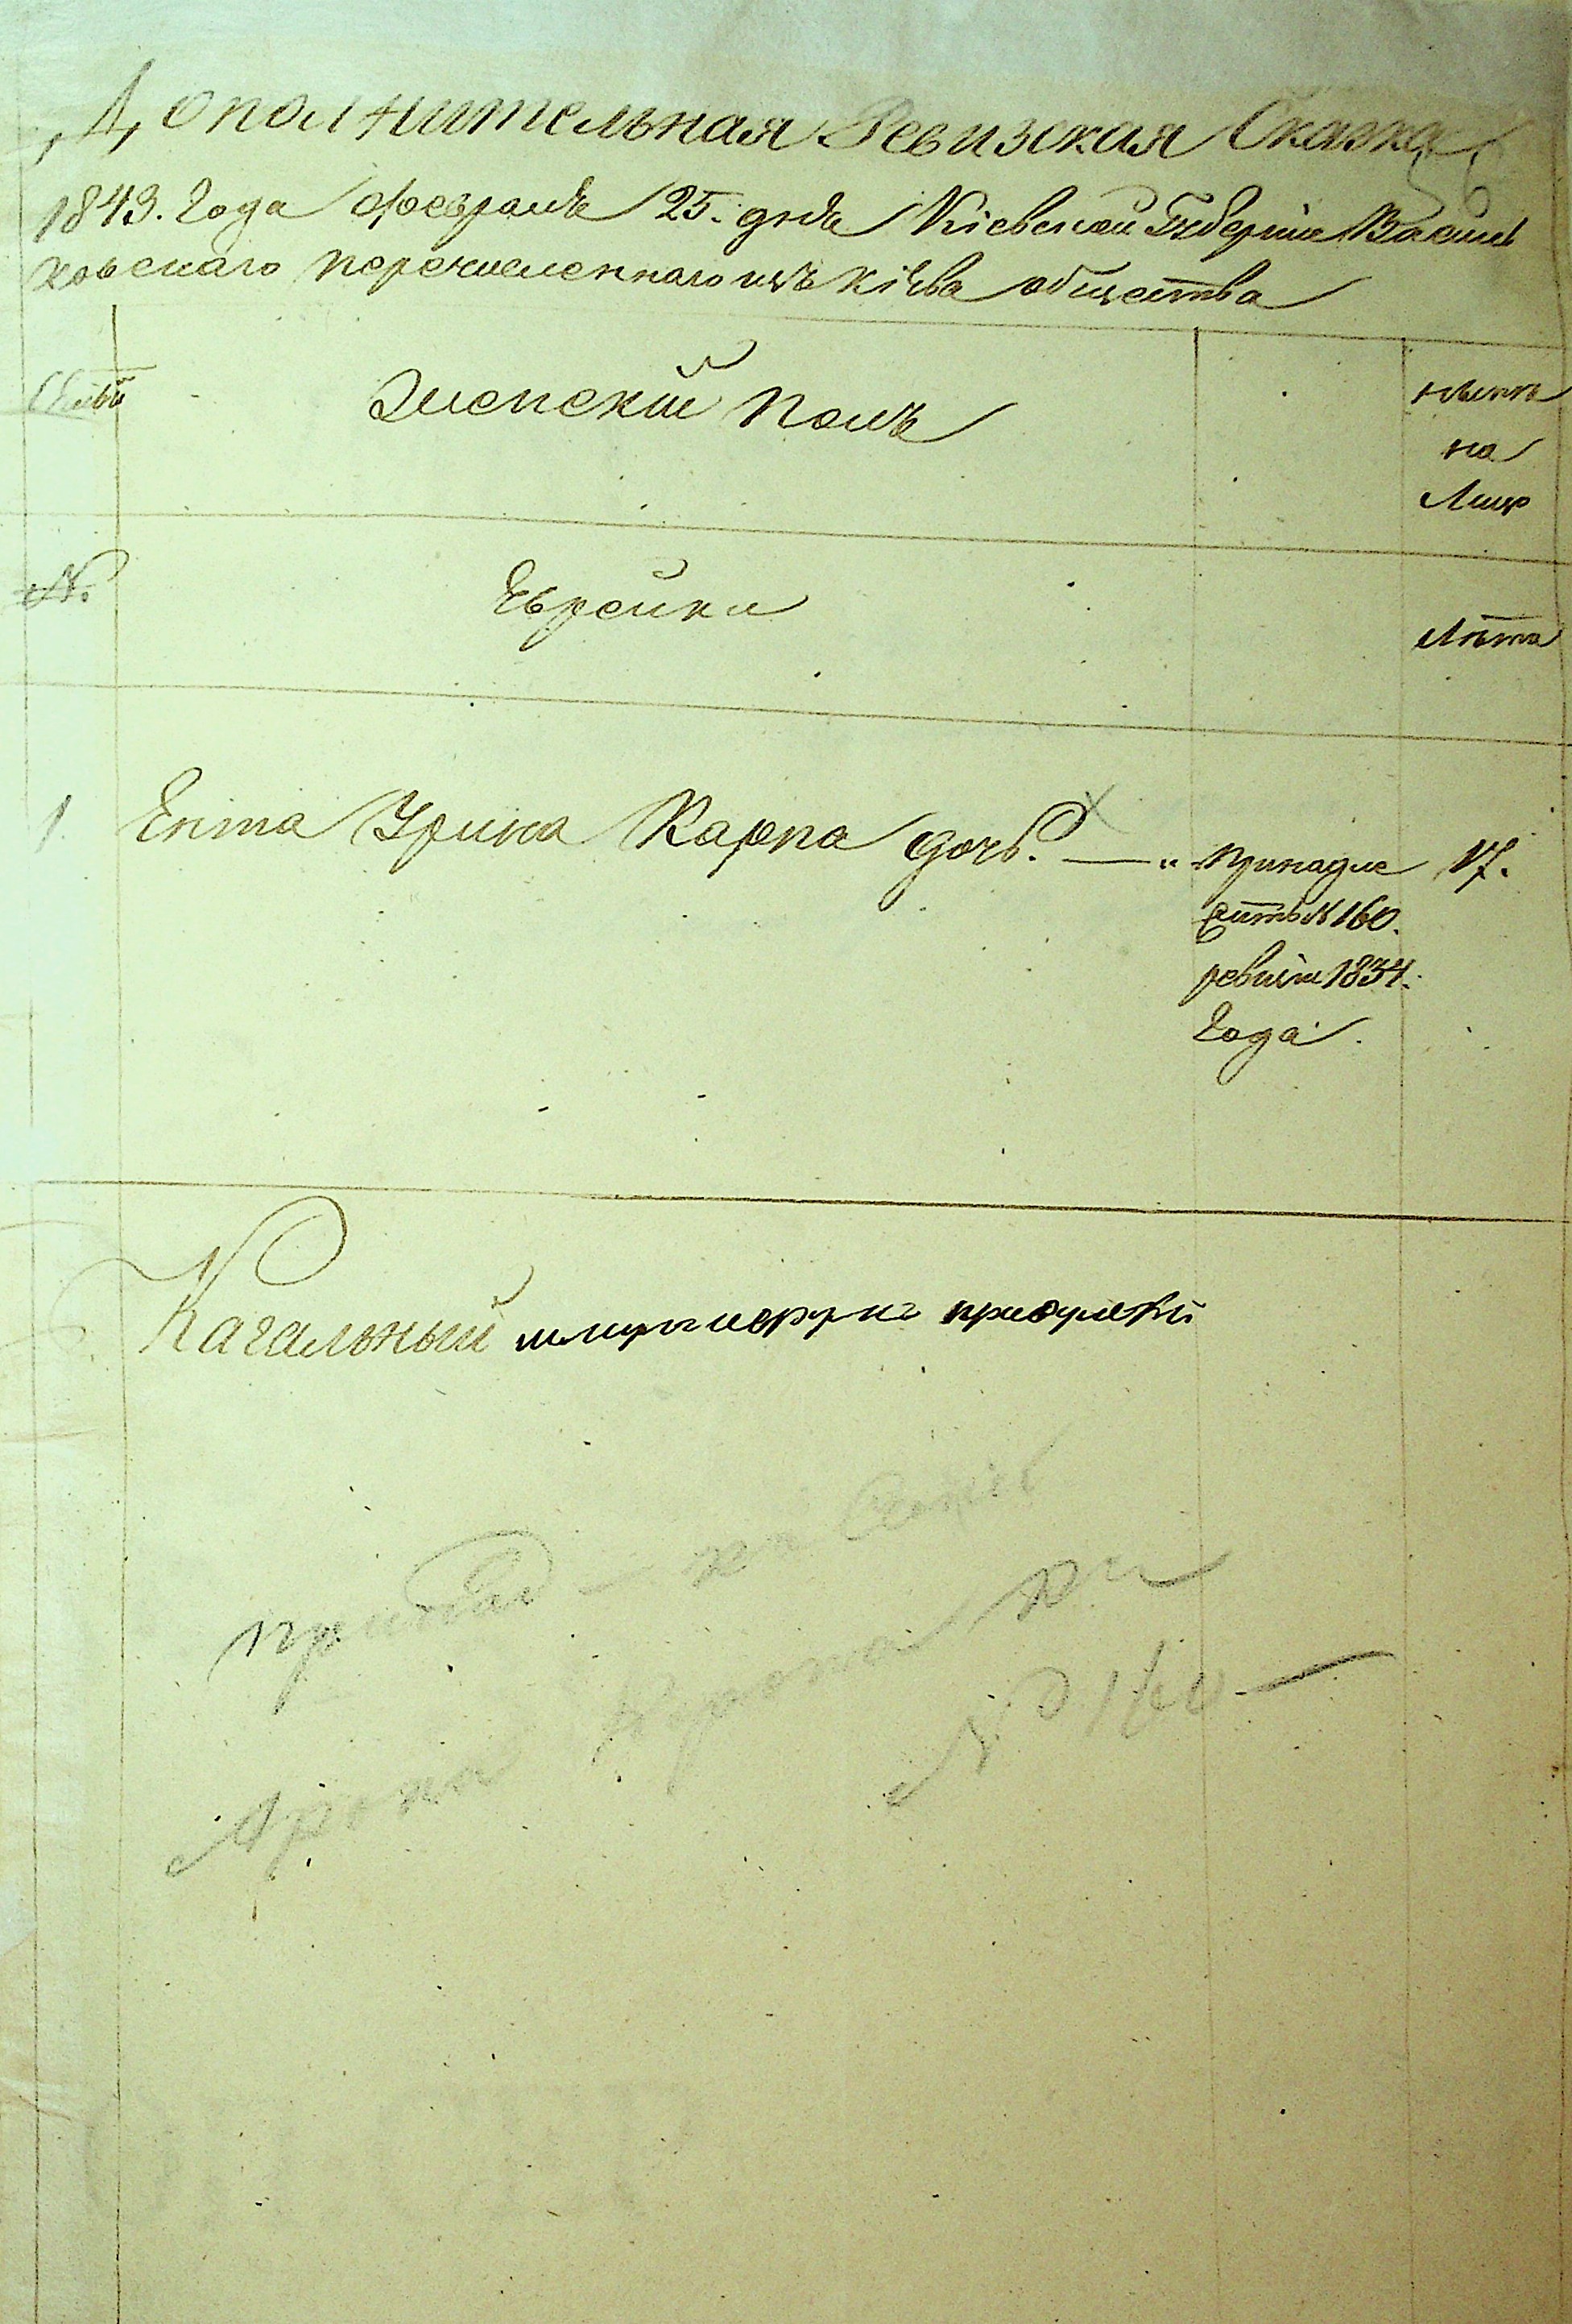 Дополнительная Ревизская Сказка
1843. Года февраля 25. дня Кіевской Губерніи Василь
ковскаго перечисленнаго изъ Кіева общества
Семьи
Женскій полъ
нынѣ
на
Лицо
№
Еврейки
Лѣта
1. Ента Урина Карпа дочь. — „
принадле
житъ № 160.
ревизіи 1834.
Года.
17.
Кагальный
принад — къ
Арона
№ 160 —